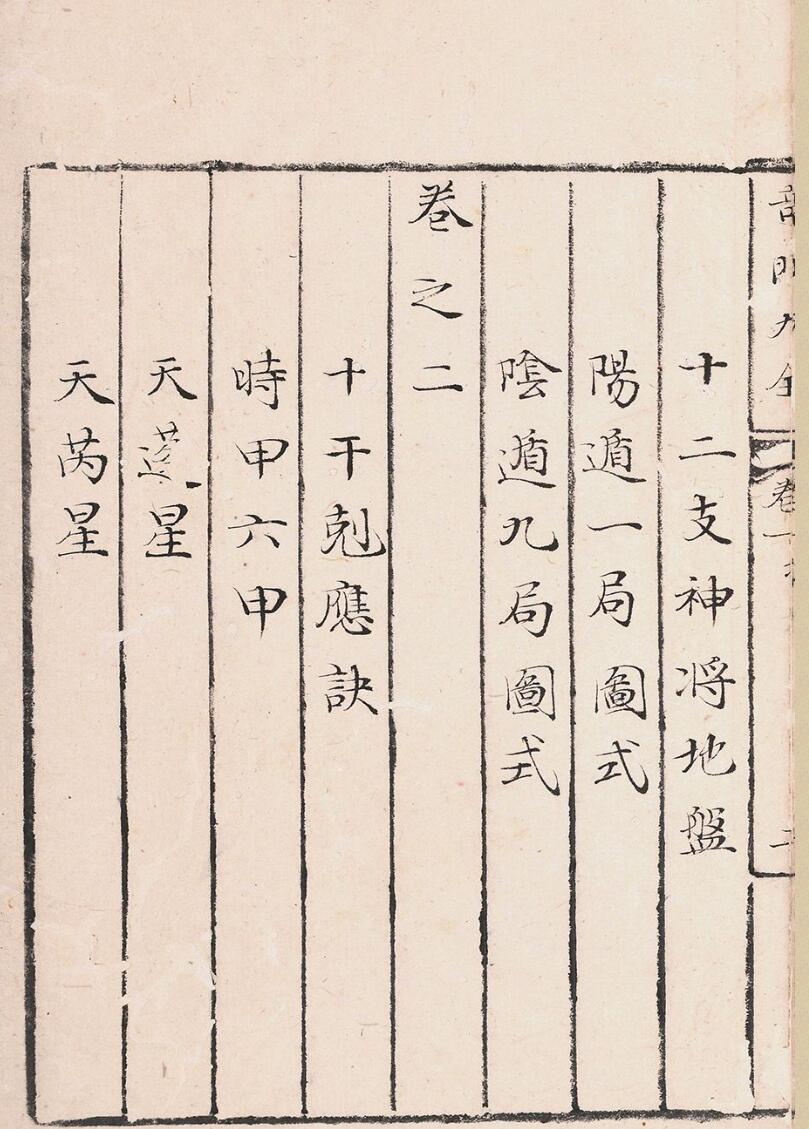 十二支神将地盤
陽遁一局圖式
陰遁九局圖式
卷之二
十干剋應訣
時甲六甲
天蓬星
天芮星